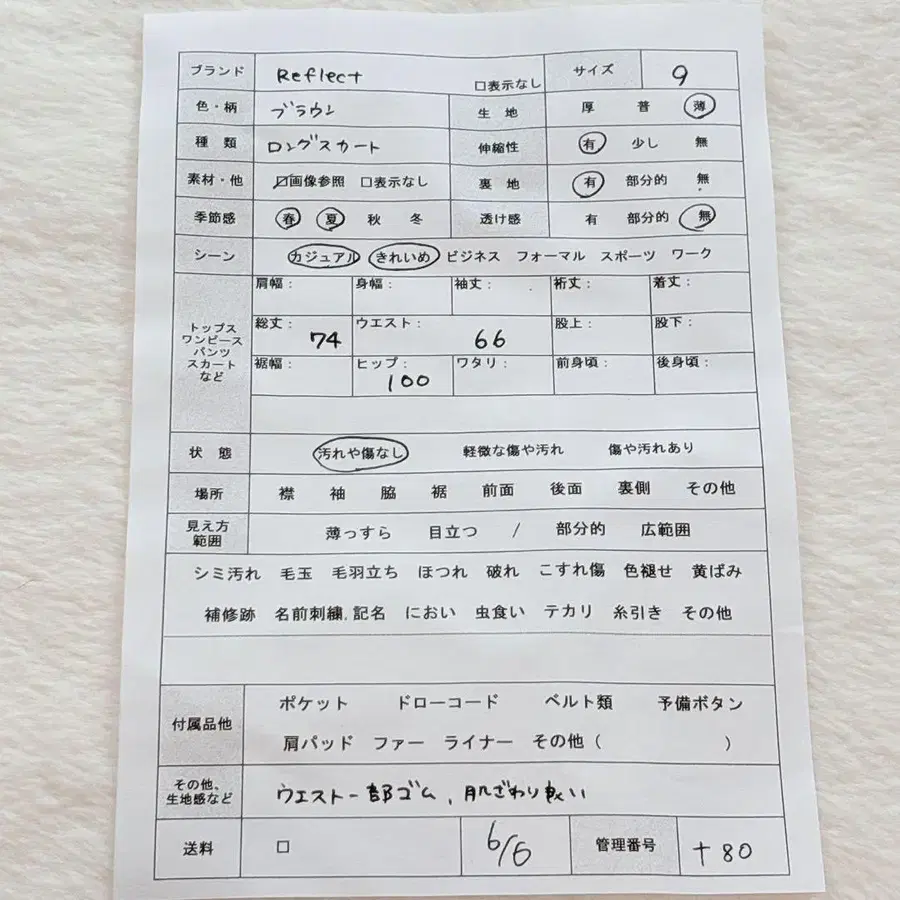 ブランド Reflect □表示なし サイズ 9
色・柄 ブラウン 生地 厚 普 薄
種類 ロングスカート 伸縮性 有 少し 無
素材・他 ☑画像参照 □表示なし 裏地 有 部分的 無
季節感 春 夏 秋 冬 透け感 有 部分的 無
シーン カジュアル きれいめ ビジネス フォーマル スポーツ ワーク
トップス
ワンピース
パンツ
スカート
など
肩幅： 身幅： 袖丈： 裄丈： 着丈：
総丈： 74 ウエスト： 66 股上： 股下：
裾幅： ヒップ： 100 ワタリ： 前身頃： 後身頃：
状態 汚れや傷なし 軽微な傷や汚れ 傷や汚れあり
場所 襟 袖 脇 裾 前面 後面 裏側 その他
見え方
範囲
薄っすら 目立つ / 部分的 広範囲
シミ汚れ 毛玉 毛羽立ち ほつれ 破れ こすれ傷 色褪せ 黄ばみ
補修跡 名前刺繍,記名 におい 虫食い テカリ 糸引き その他
付属品他
ポケット ドローコード ベルト類 予備ボタン
肩パッド ファー ライナー その他（ ）
その他、
生地感など
ウエスト一部ゴム、肌ざわり良い
送料 □ 6/6 管理番号 +80